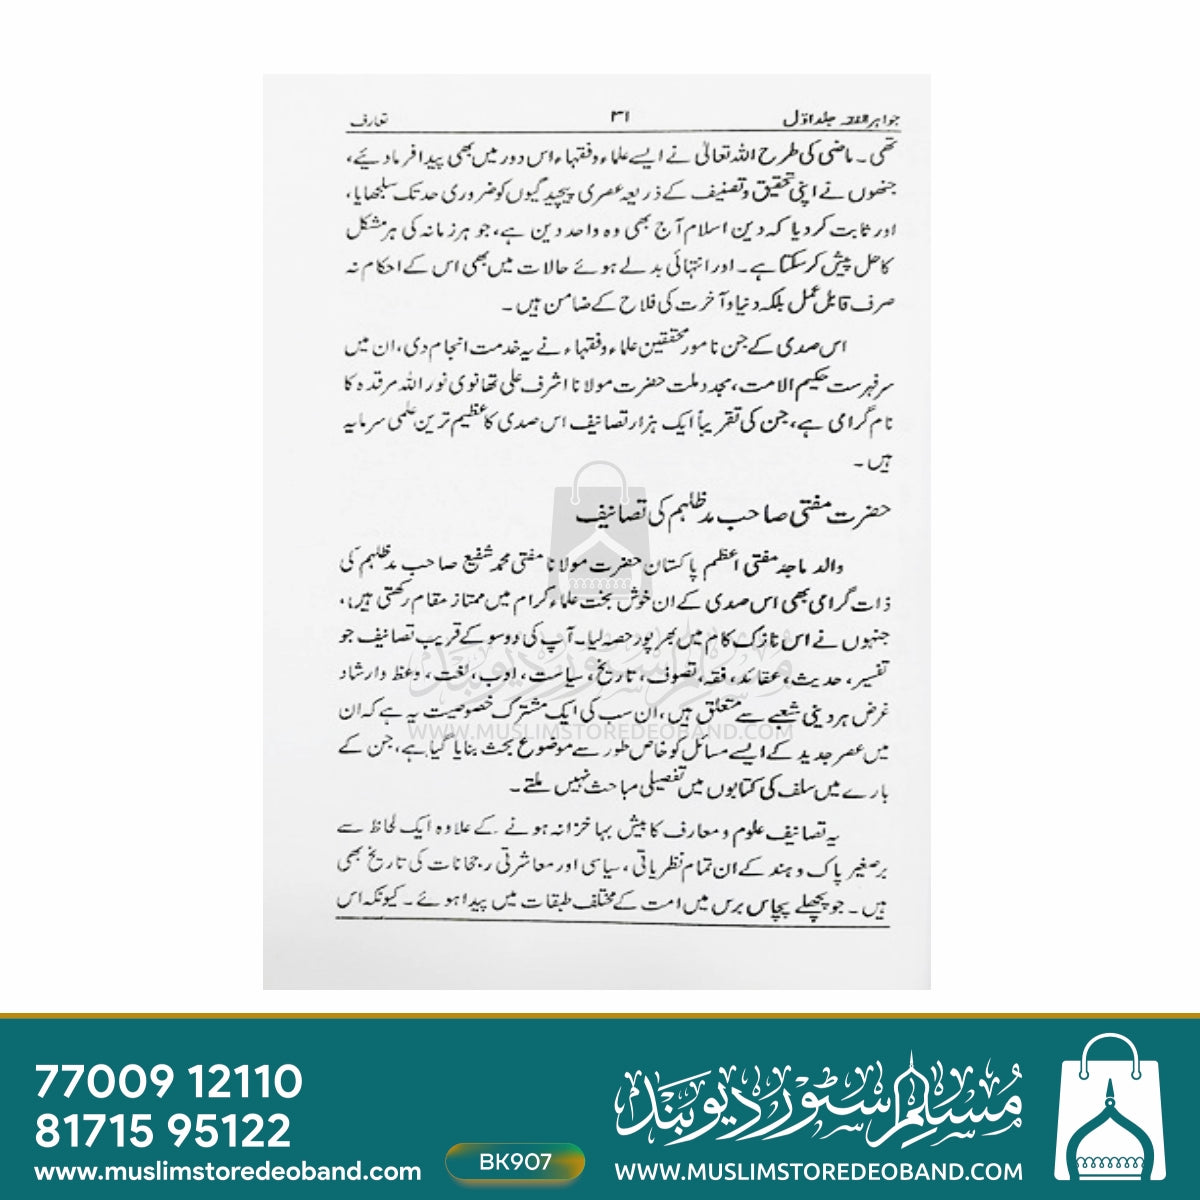 جواہر الفقہ جلد اوّل ۳۱ تعارف
تھی ۔ ماضی کی طرح اللہ تعالیٰ نے ایسے علماء و فقہاء اس دور میں بھی پیدا فرما دئیے،
جنھوں نے اپنی تحقیق و تصنیف کے ذریعہ عصری پیچیدگیوں کو ضروری حد تک سلجھایا،
اور ثابت کر دیا کہ دین اسلام آج بھی وہ واحد دین ہے، جو ہر زمانہ کی ہر مشکل
کا حل پیش کر سکتا ہے۔ اور انتہائی بدلے ہوئے حالات میں بھی اس کے احکام نہ
صرف قابل عمل بلکہ دنیا و آخرت کی فلاح کے ضامن ہیں ۔
اس صدی کے جن نامور محققین علماء و فقہاء نے یہ خدمت انجام دی، ان میں
سرفہرست حکیم الامت، مجدد ملت حضرت مولانا اشرف علی تھانوی نور اللہ مرقدہ کا
نام گرامی ہے، جن کی تقریباً ایک ہزار تصانیف اس صدی کا عظیم ترین علمی سرمایہ
ہیں ۔
حضرت مفتی صاحب مدظلہم کی تصانیف
والد ماجد مفتی اعظم پاکستان حضرت مولانا مفتی محمد شفیع صاحب مدظلہم کی
ذات گرامی بھی اس صدی کے ان خوش بخت علماء کرام میں ممتاز مقام رکھتی ہیں،
جنہوں نے اس نازک کام میں بھر پور حصہ لیا۔ آپ کی دو سو کے قریب تصانیف جو
تفسیر، حدیث، عقائد، فقہ، تصوف، تاریخ، سیاست، ادب، لغت، وعظ و ارشاد
غرض ہر دینی شعبے سے متعلق ہیں، ان سب کی ایک مشترک خصوصیت یہ ہے کہ ان
میں عصر جدید کے ایسے مسائل کو خاص طور سے موضوع بحث بنایا گیا ہے، جن کے
بارے میں سلف کی کتابوں میں تفصیلی مباحث نہیں ملتے ۔
یہ تصانیف علوم و معارف کا بیش بہا خزانہ ہونے کے علاوہ ایک لحاظ سے
برصغیر پاک و ہند کے ان تمام نظریاتی، سیاسی اور معاشرتی رجحانات کی تاریخ بھی
ہیں ۔ جو پچھلے پچاس برس میں امت کے مختلف طبقات میں پیدا ہوئے ۔ کیونکہ اس
مسلم سٹور دیوبند
WWW.MUSLIMSTOREDEOBAND.COM
77009 12110
81715 95122
www.muslimstoredeoband.com
BK907
مسلم سٹور دیوبند
WWW.MUSLIMSTOREDEOBAND.COM